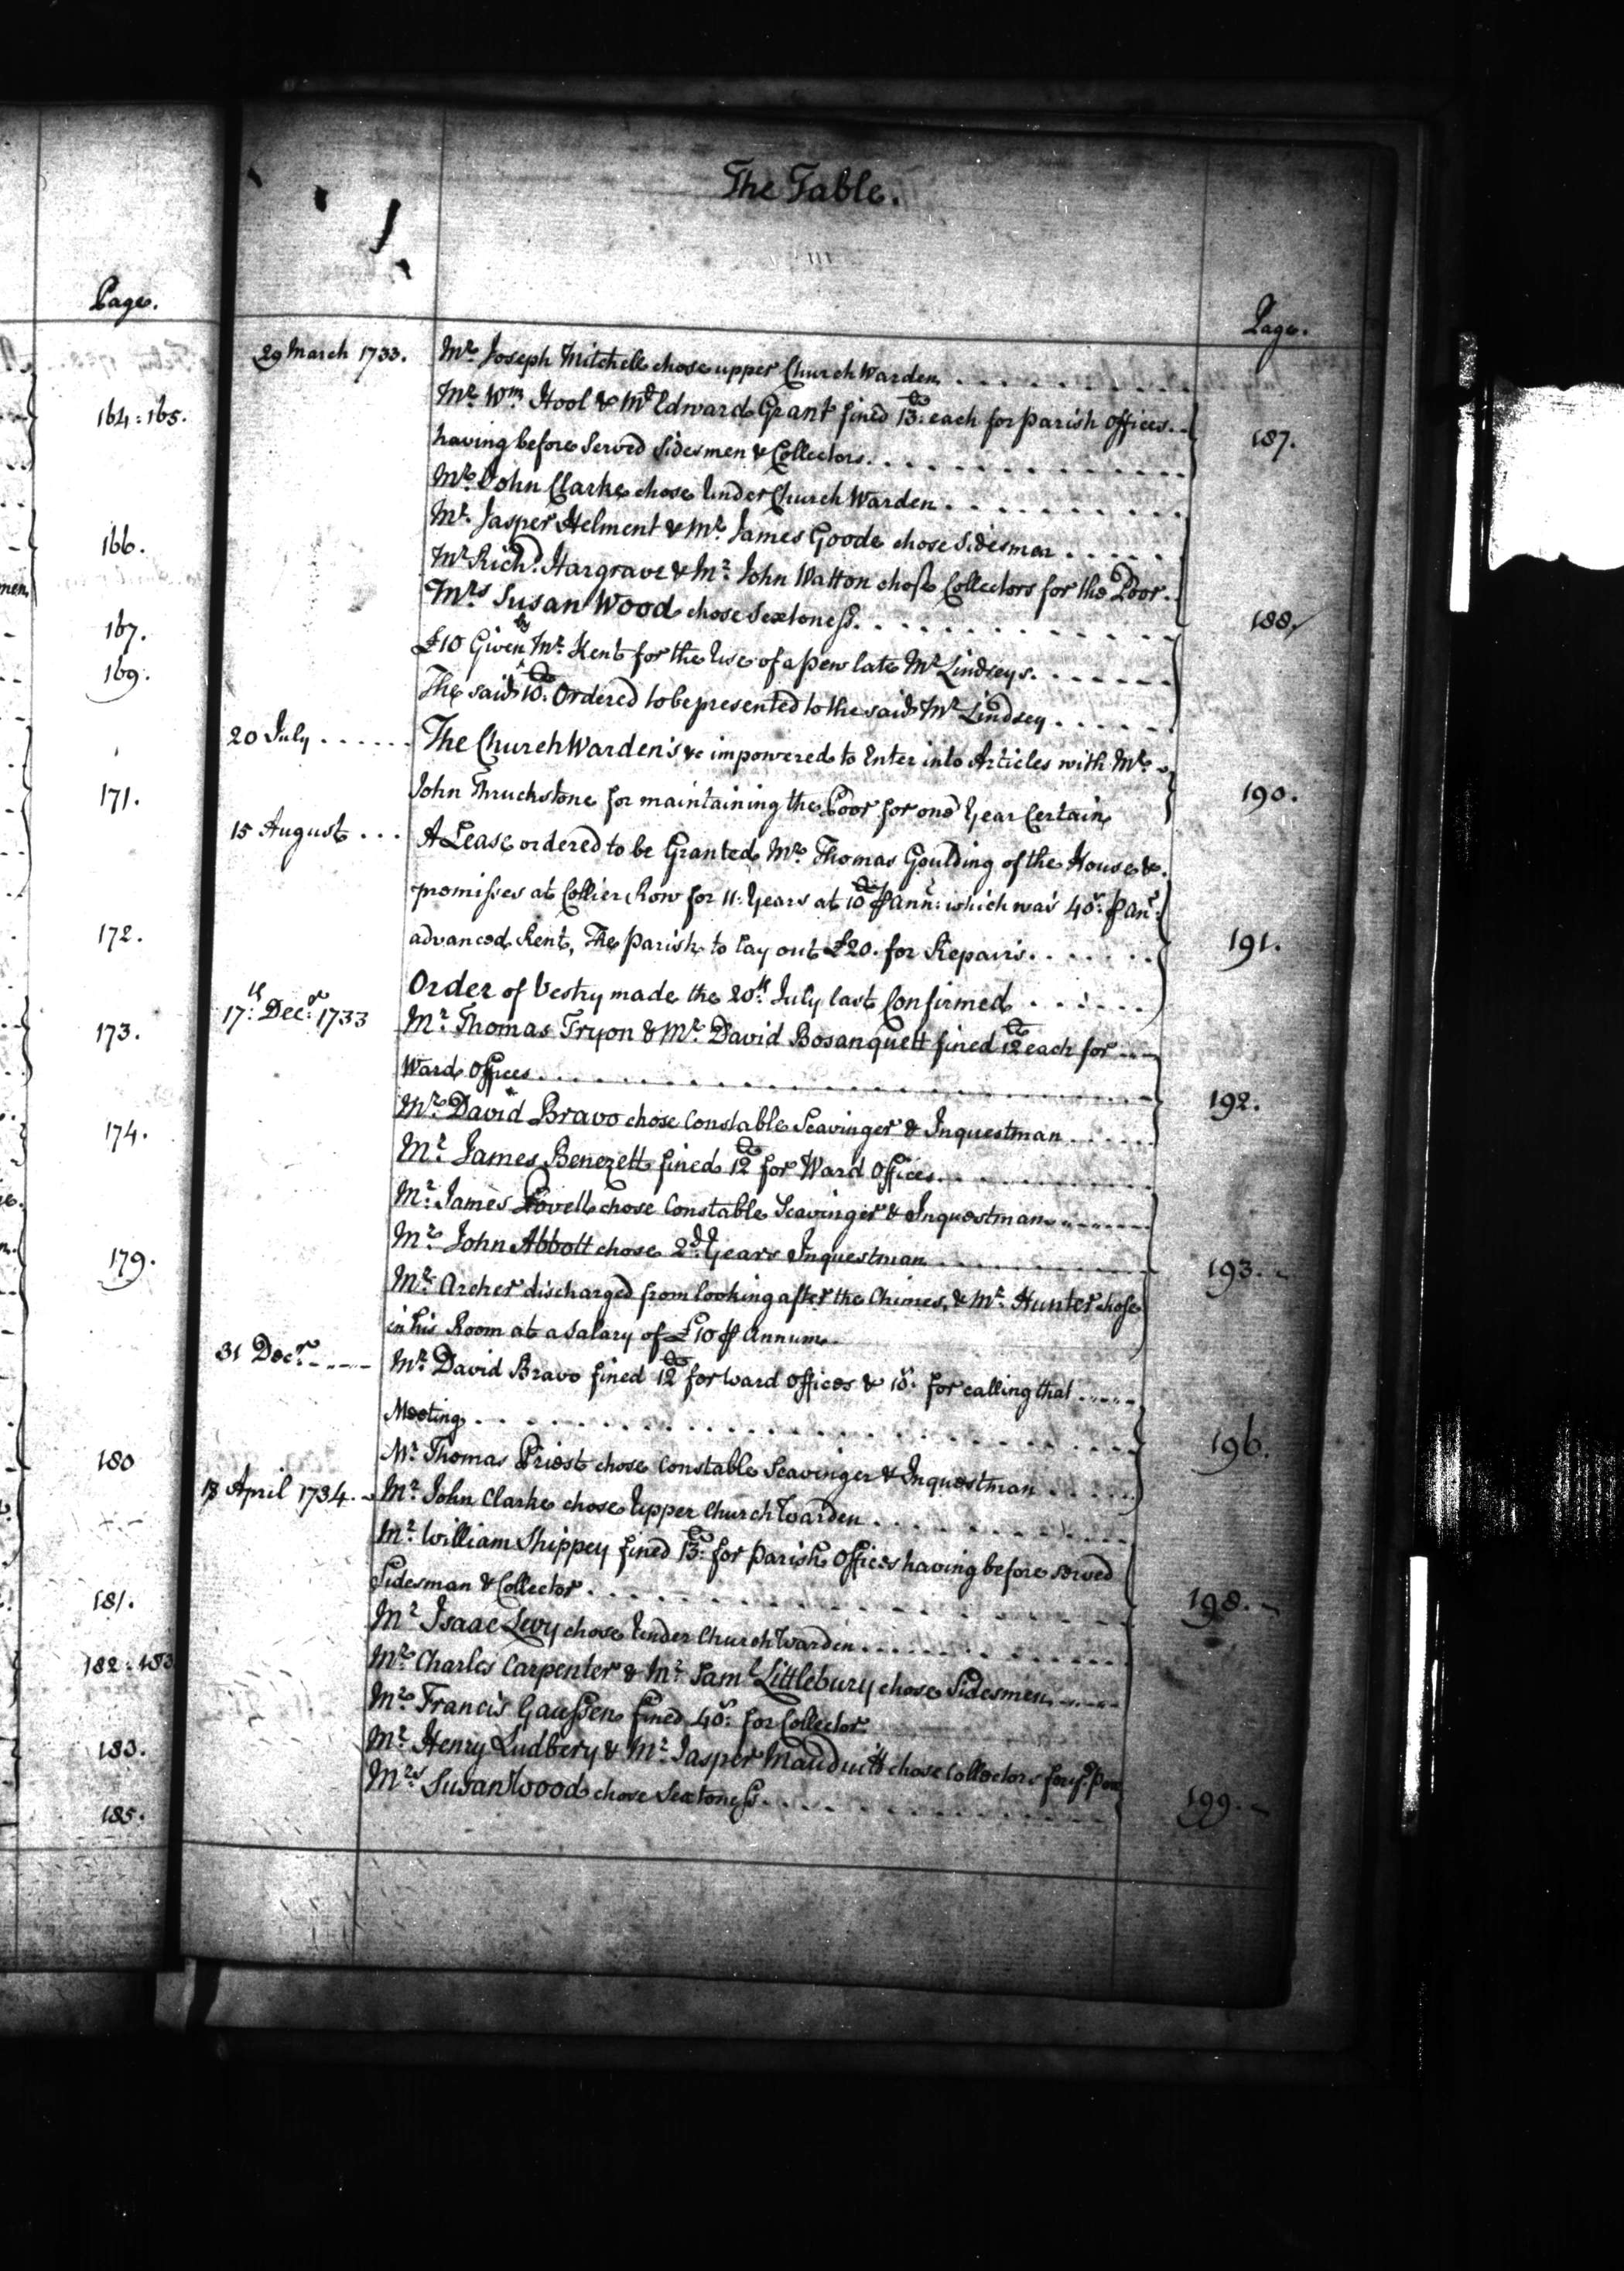 Page.
164:165.
166.
167.
169.
171.
172.
173.
174.
179.
180
181.
182:183
183.
185.
The Table.
Page.
29 March 1733. Mr. Joseph Mitchell chose upper Church Warden
Mr. Wm. Hool & Mr. Edward Grant fined £13: each for parish offices
having before Served Sidesmen & Collectors 187.
Mr. John Clarke chose Under Church Warden
Mr. Jasper Helment & Mr. James Goode chose Sidesmen
Mr Richd. Hargrave & Mr. John Watton chose Collectors for the Poor
Mrs Susan Wood chose Sextoness 188.
£10 Given by Mr. Kent for the Use of a pew late Mr Lindseys
The said £10. Ordered to be presented to the said Mr Lindsey
20 July The Church Warden's &c impowered to Enter into Articles with Mr.
John Thruckstone for maintaining the Poor for one Year Certain 190.
15 August A Lease ordered to be Granted Mr. Thomas Goulding of the House &
promisses at Collier Row for 11: Years at £10 ℔ Ann: which was 40s: ℔ Anm:
advanced Rent, The parish to lay out £20. for Repairs 191.
Order of Vestry made the 20th. July last Confirmed
17th: Decr: 1733 Mr. Thomas Tryon & Mr. David Bosanquett fined £12 each for
Ward offices
Mr. David Bravo chose Constable Scavinger & Inquestman 192.
Mr. James Benezett fined £12 for Ward offices
Mr. James Lovell chose Constable Scavinger & Inquestman
Mr. John Abbott chose 2d. Years Inquestman
Mr. Archer discharged from looking after the Chimes, & Mr. Hunter chose 193.
in his Room at a Salary of £10 ℔ Annum
31 Decr. Mr. David Bravo fined £12 for ward offices & 10s. for calling that
Meeting
Mr. Thomas Priest chose Constable Scavinger & Inquestman 196.
18 April 1734. Mr. John Clarke chose Upper Church Warden
Mr. William Shippey fined £13: for parish offices having before served
Sidesman & Collector 198.
Mr Isaac Levy chose Under Church Warden
Mr. Charles Carpenter & Mr. Saml Littlebury chose Sidesmen
Mr. Francis Gaussen fined 40s: for Collector
Mr. Henry Ludbery & Mr. Jasper Mauduitt chose Collectors for ye. Poor
Mrs Susan Wood chose Sextoness 199.